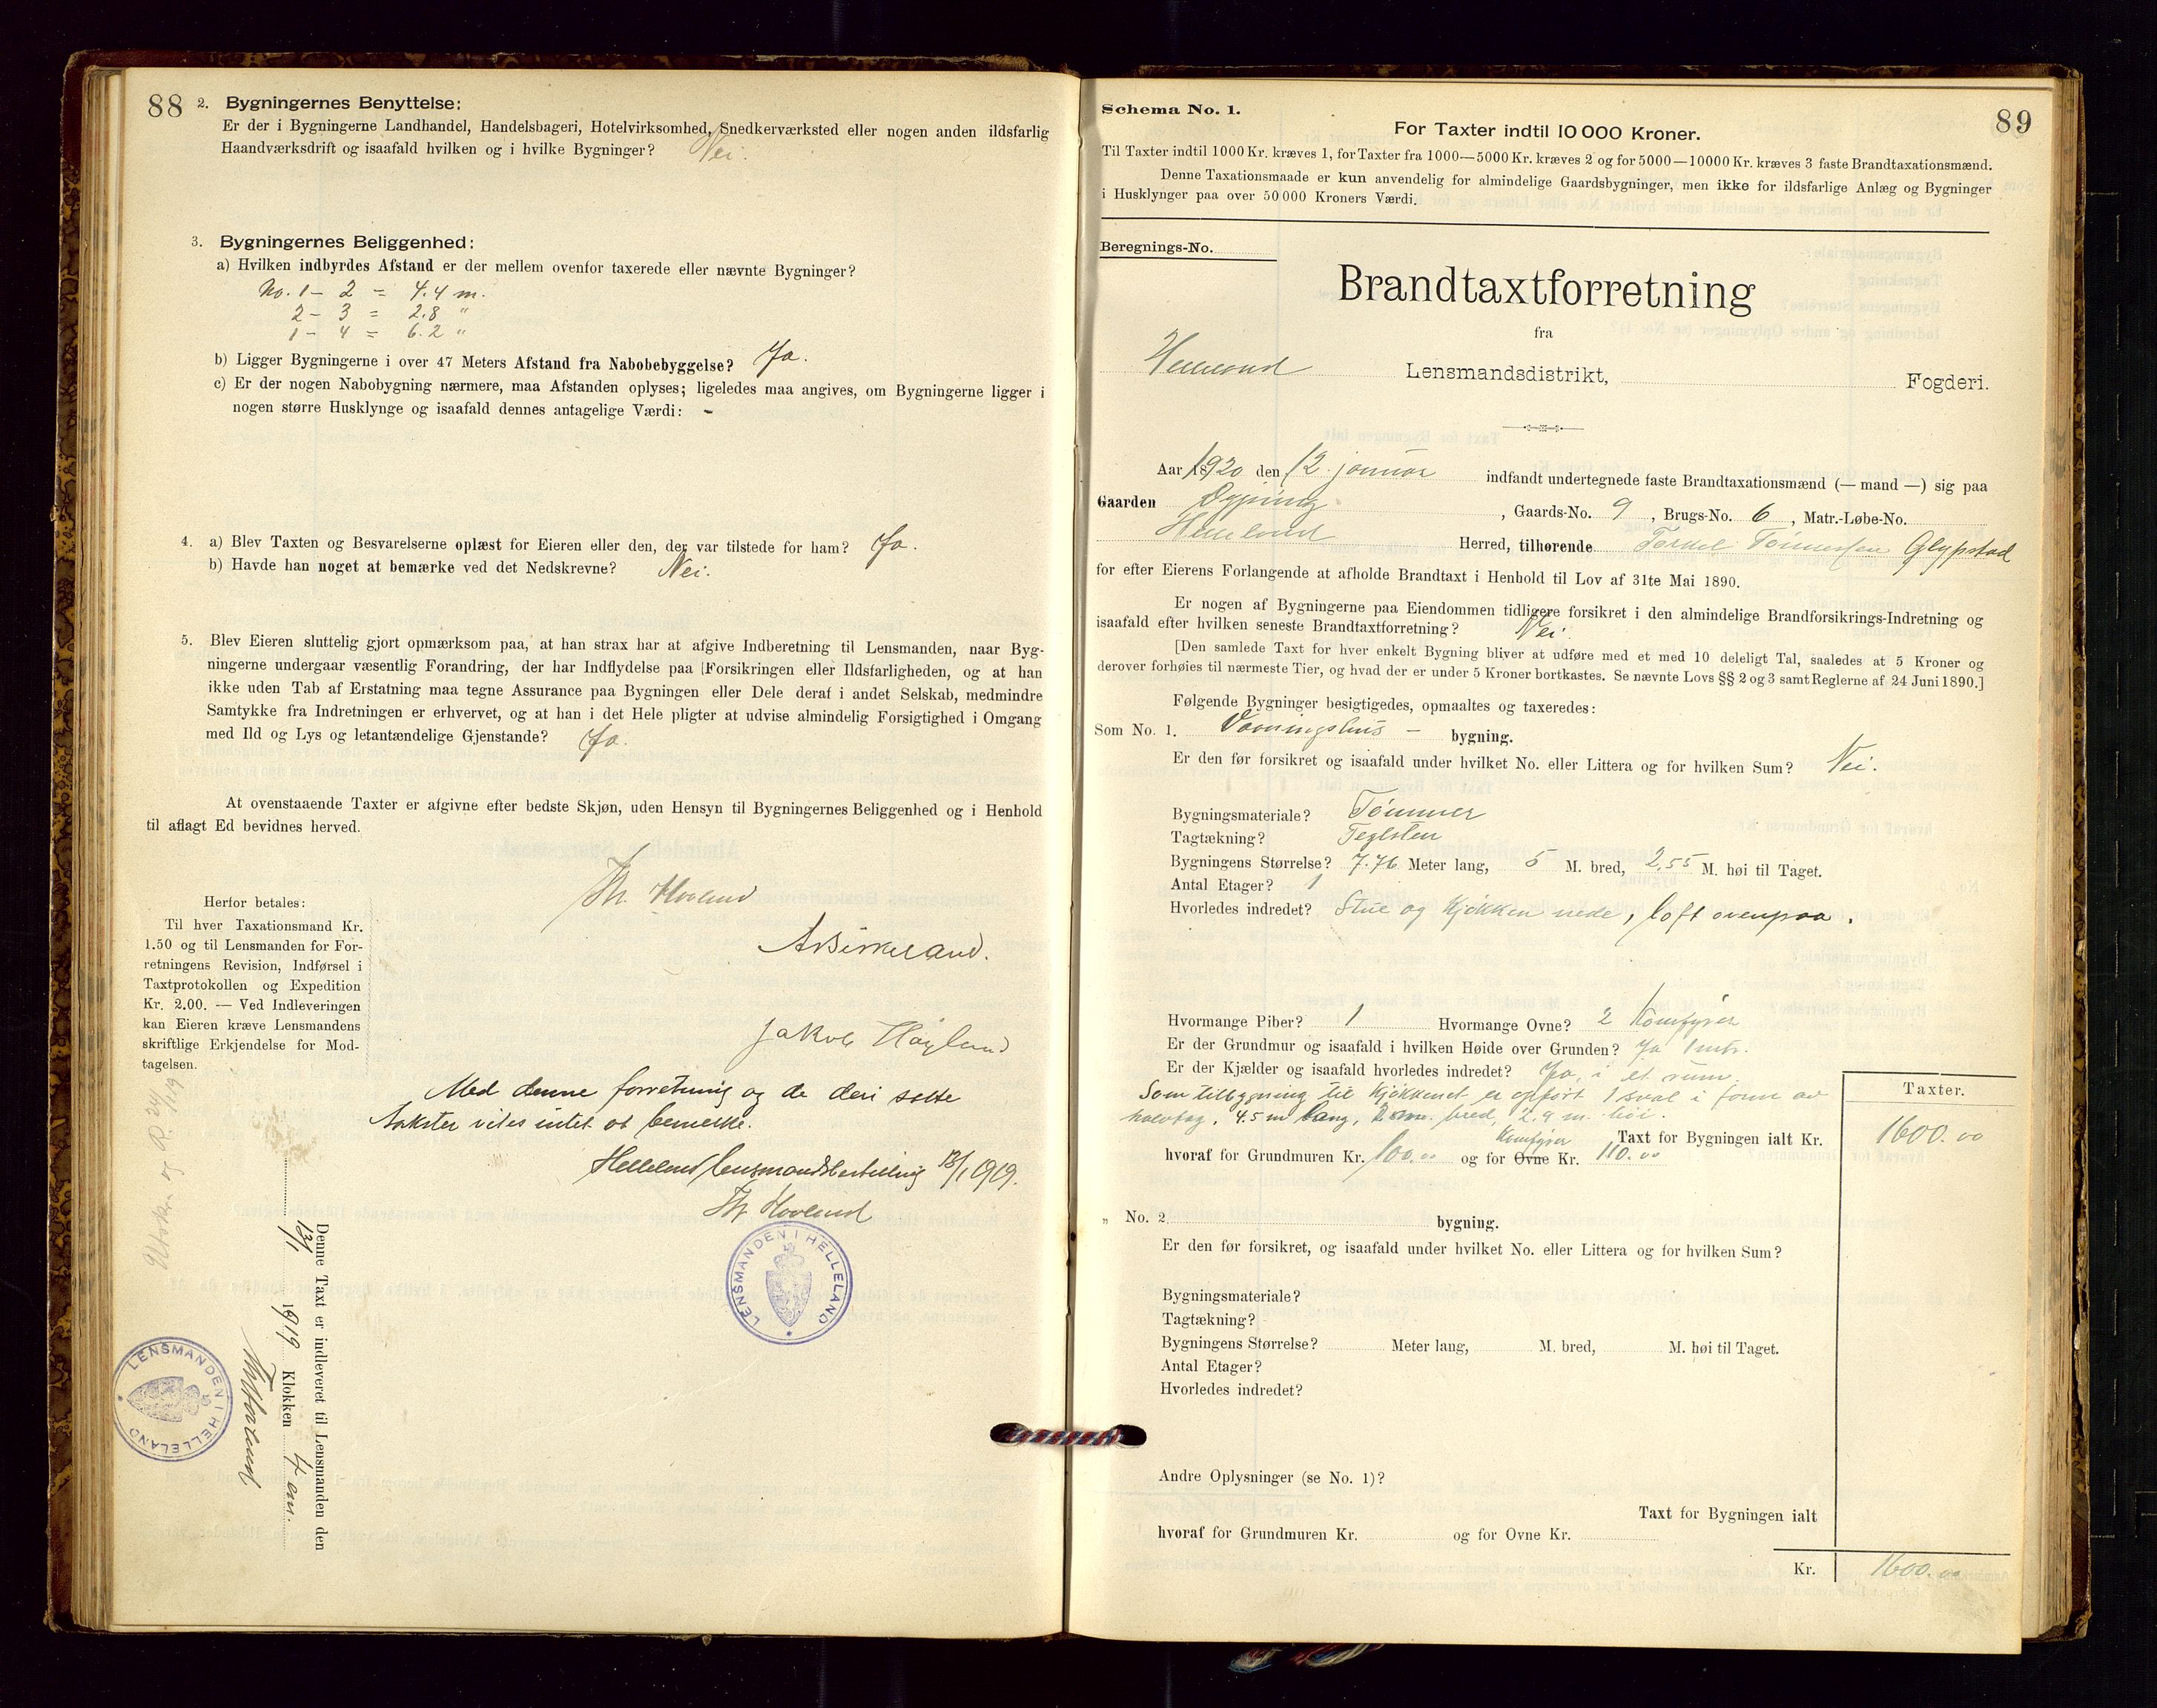 88
2. Bygningernes Benyttelse:
Er der i Bygningerne Landhandel, Handelsbageri, Hotelvirksomhed, Snedkerværksted eller nogen anden ildsfarlig
Haandværksdrift og isaafald hvilken og i hvilke Bygninger? Nei.
3. Bygningernes Beliggenhed:
a) Hvilken indbyrdes Afstand er der mellem ovenfor taxerede eller nævnte Bygninger?
No. 1 - 2 = 4.4 m.
2 - 3 = 2.8 "
1 - 4 = 6.2 "
b) Ligger Bygningerne i over 47 Meters Afstand fra Nabobebyggelse? Ja.
c) Er der nogen Nabobygning nærmere, maa Afstanden oplyses; ligeledes maa angives, om Bygningerne ligger i
nogen større Husklynge og isaafald dennes antagelige Værdi: -
4. a) Blev Taxten og Besvarelserne oplæst for Eieren eller den, der var tilstede for ham? Ja.
b) Havde han noget at bemærke ved det Nedskrevne? Nei.
5. Blev Eieren sluttelig gjort opmærksom paa, at han strax har at afgive Indberetning til Lensmanden, naar Byg-
ningerne undergaar væsentlig Forandring, der har Indflydelse paa Forsikringen eller Ildsfarligheden, og at han
ikke uden Tab af Erstatning maa tegne Assurance paa Bygningen eller Dele deraf i andet Selskab, medmindre
Samtykke fra Indretningen er erhvervet, og at han i det Hele pligter at udvise almindelig Forsigtighed i Omgang
med Ild og Lys og letantændelige Gjenstande? Ja.
At ovenstaaende Taxter er afgivne efter bedste Skjøn, uden Hensyn til Bygningernes Beliggenhed og i Henhold
til aflagt Ed bevidnes herved.
Th. Hovland
A Birkeland.
Jakob Høyland
Herfor betales:
Til hver Taxationsmand Kr.
1.50 og til Lensmanden for For-
retningens Revision, Indførsel i
Taxtprotokollen og Expedition
Kr. 2.00. — Ved Indleveringen
kan Eieren kræve Lensmandens
skriftlige Erkjendelse for Mod-
tagelsen.
Med denne forretning og de deri satte
Takster vites intet at bemerke.
Helleland lensmandsbestilling 13/1 1919.
Th. Hovland
LENSMANDEN I HELLELAND
Denne Taxt er indleveret til Lensmanden den
13/1 1919 Klokken 4 em.
Th Hovland
LENSMANDEN I HELLELAND
89
Schema No. 1.
For Taxter indtil 10 000 Kroner.
Til Taxter indtil 1000 Kr. kræves 1, for Taxter fra 1000—5000 Kr. kræves 2 og for 5000—10000 Kr. kræves 3 faste Brandtaxationsmænd.
Denne Taxationsmaade er kun anvendelig for almindelige Gaardsbygninger, men ikke for ildsfarlige Anlæg og Bygninger
i Husklynger paa over 50 000 Kroners Værdi.
Beregnings-No.
Brandtaxtforretning
fra
Helleland Lensmandsdistrikt, Fogderi.
Aar 1920 den 12 januar indfandt undertegnede faste Brandtaxationsmænd (— mand —) sig paa
Gaarden , Gaards-No. 9, Brugs-No. 6, Matr.-Løbe-No.
Helleland Herred, tilhørende Torkel Tønnessen Glypstad
for efter Eierens Forlangende at afholde Brandtaxt i Henhold til Lov af 31te Mai 1890.
Er nogen af Bygningerne paa Eiendommen tidligere forsikret i den almindelige Brandforsikrings-Indretning og
isaafald efter hvilken seneste Brandtaxtforretning? Nei.
[Den samlede Taxt for hver enkelt Bygning bliver at udføre med et med 10 deleligt Tal, saaledes at 5 Kroner og
derover forhøies til nærmeste Tier, og hvad der er under 5 Kroner bortkastes. Se nævnte Lovs §§ 2 og 3 samt Reglerne af 24 Juni 1890.]
Følgende Bygninger besigtigedes, opmaaltes og taxeredes:
Som No. 1. Vaaningshus - bygning.
Er den før forsikret og isaafald under hvilket No. eller Littera og for hvilken Sum? Nei.
Bygningsmateriale? Tømmer
Tagtækning? Teglsten
Bygningens Størrelse? 7.76 Meter lang, 5 M. bred, 2.55 M. høi til Taget.
Antal Etager? 1
Hvorledes indredet? Stue og kjøkken nede, loft ovenpaa.
Hvormange Piber? 1 Hvormange Ovne? 2 Komfyrer
Er der Grundmur og isaafald i hvilken Høide over Grunden? Ja 1 mtr.
Er der Kjælder og isaafald hvorledes indredet? Ja, i et rum.
Som tilbygning til kjøkkenet er opført 1 sval i form av
halvtag. 4.5 m lang, 2 m. bred, 2.9 m. høi.
Taxter.
Taxt for Bygningen ialt Kr. 1600.00
hvoraf for Grundmuren Kr. 100.00 og for Ovne Komfyrer Kr. 110.00
" No. 2 bygning.
Er den før forsikret, og isaafald under hvilket No. eller Littera og for hvilken Sum?
Bygningsmateriale?
Tagtækning?
Bygningens Størrelse? Meter lang, M. bred, M. høi til Taget.
Antal Etager?
Hvorledes indredet?
Andre Oplysninger (se No. 1)?
Taxt for Bygningen ialt
hvoraf for Grundmuren Kr. og for Ovne Kr.
Kr. 1600.00